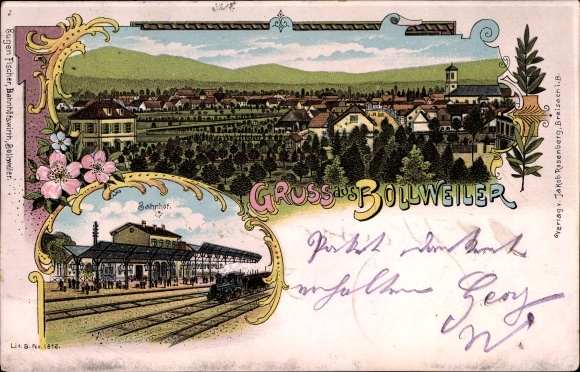 Eugen Fischer, Bahnhofswirth, Bollweiler.
Gruss aus Bollweiler
Verlag v. Jakob Rosenberg, Breisach i. B.
Bahnhof.
Paket dankend
erhalten Georg
Lit. B. No. 1812.